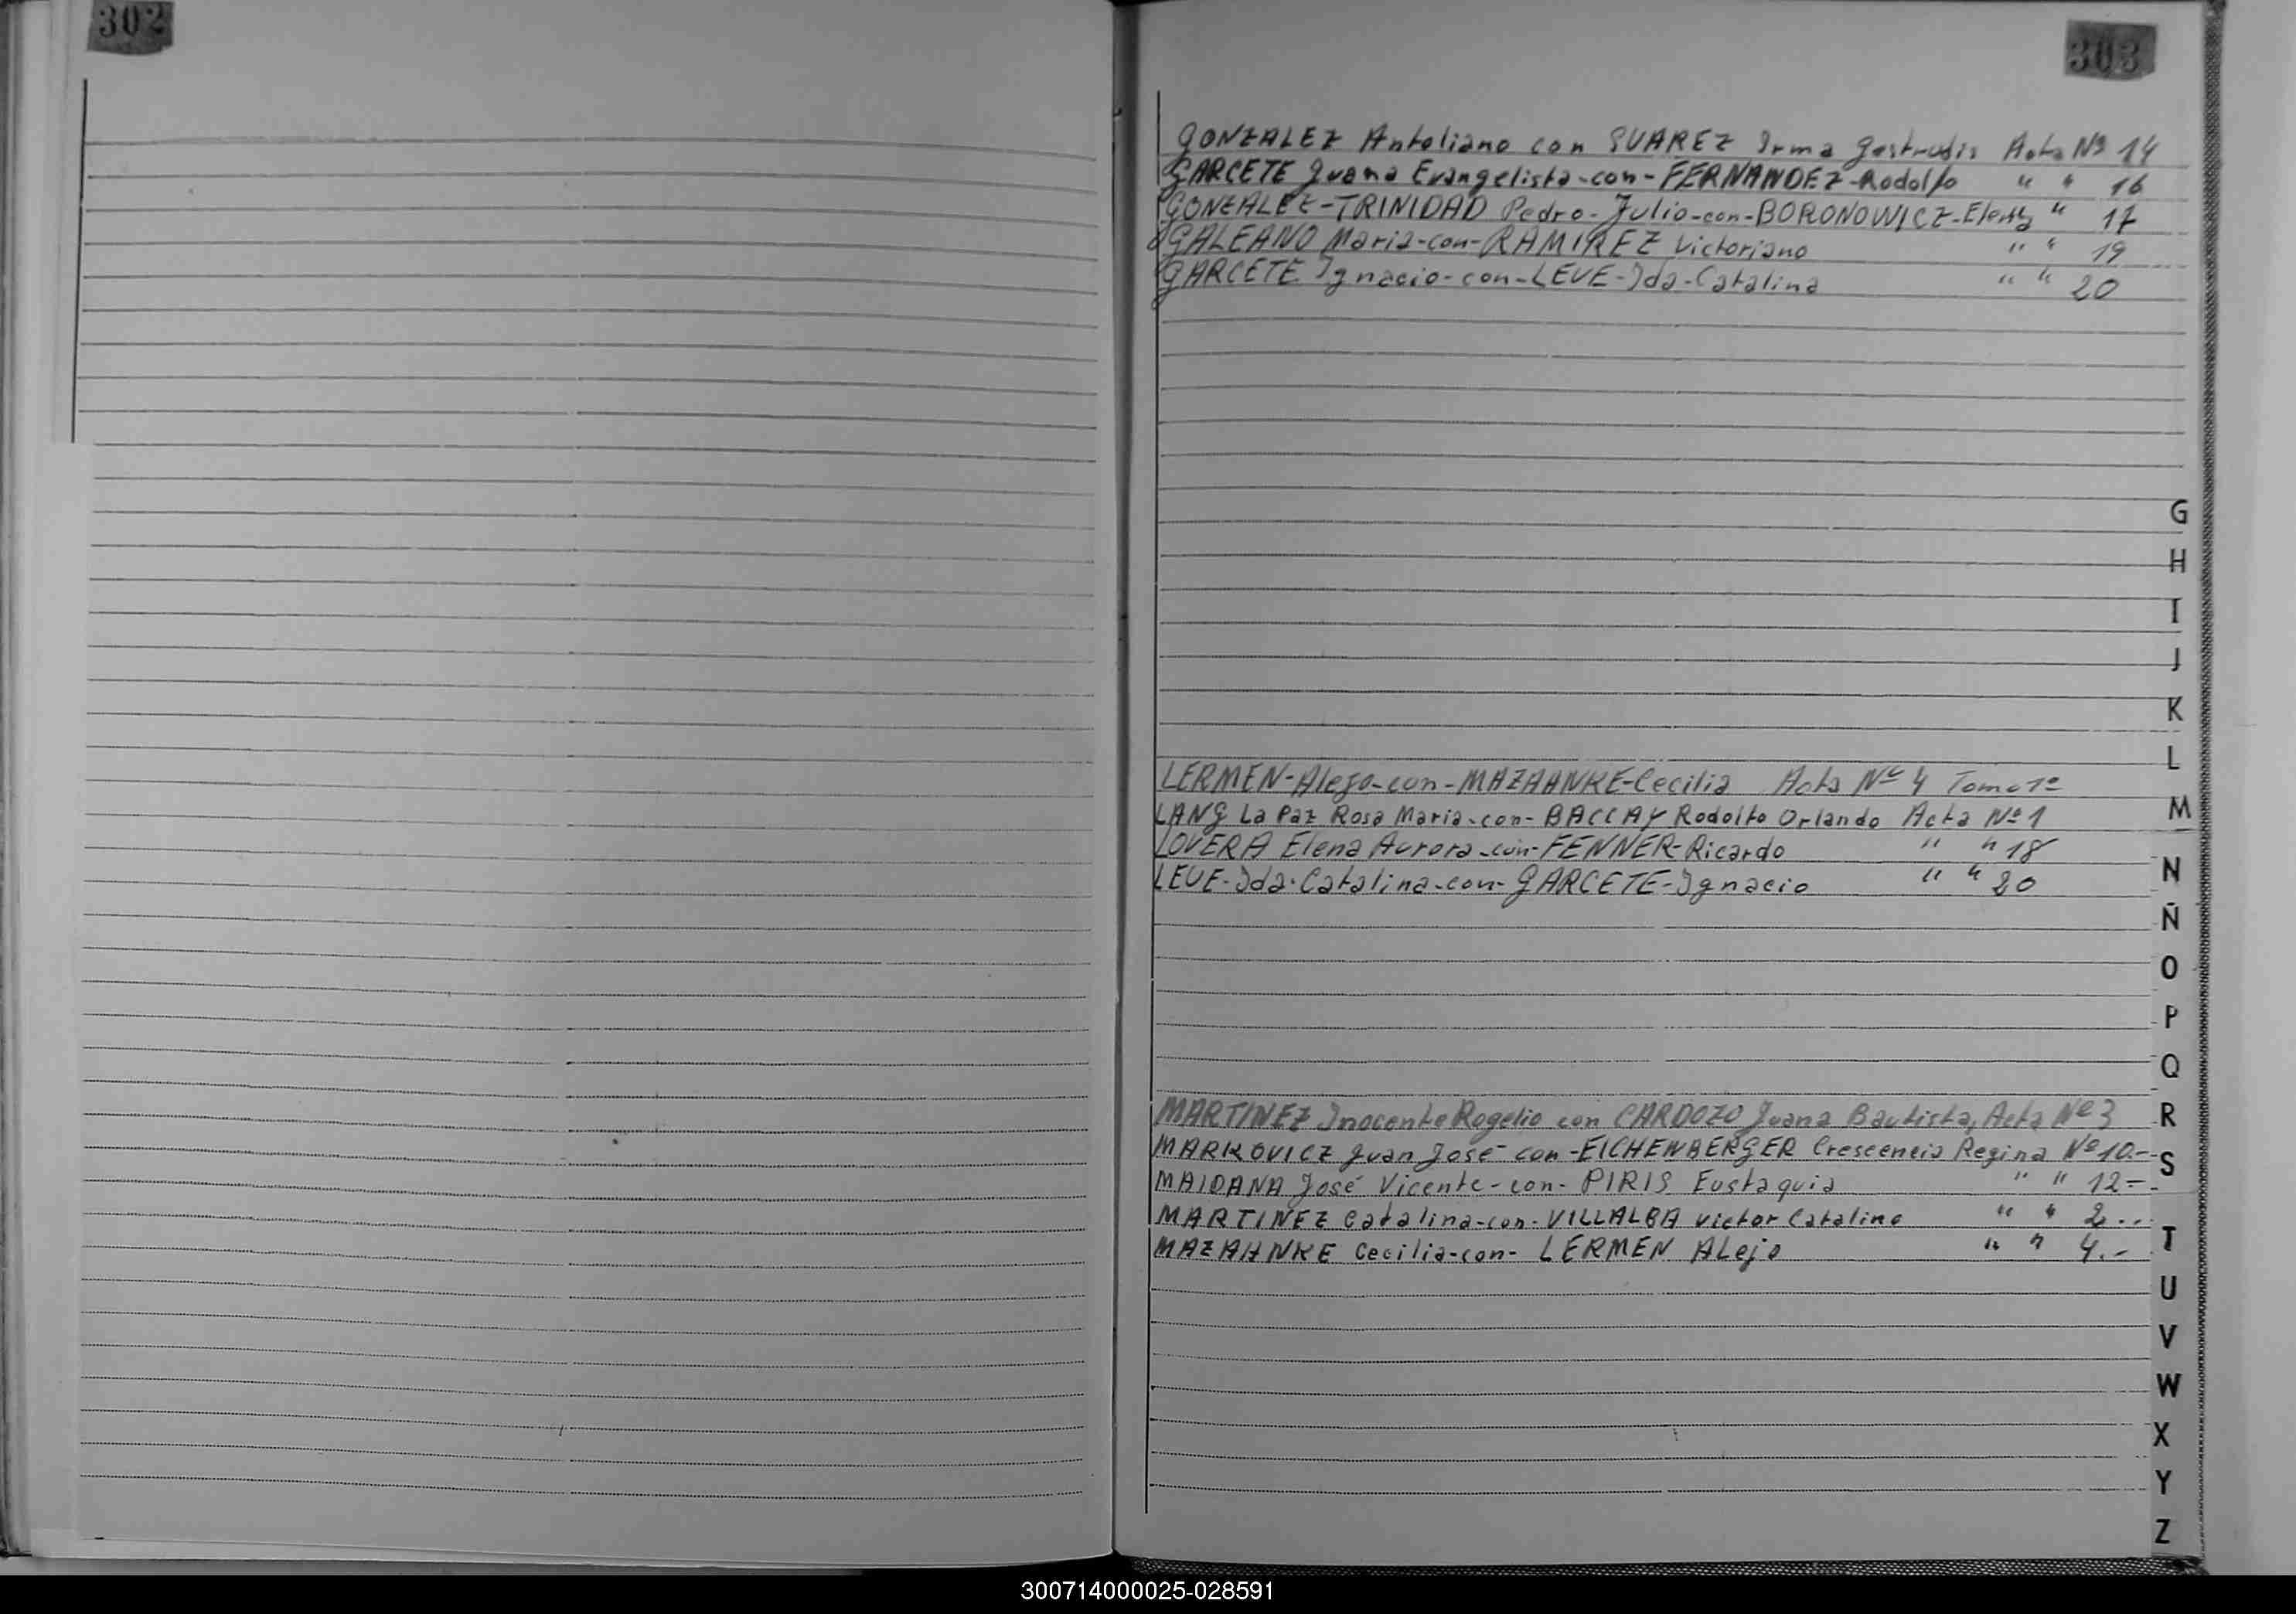 302
303
GONZALEZ Antoliano con SUAREZ Irma Gertrudis Acta Nº 14
GARCETE Juana Evangelista-con-FERNANDEZ-Rodolfo " " 16
GONZALEZ-TRINIDAD Pedro-Julio-con-BORONOWICZ- " 17
GALEANO Maria-con-RAMIREZ Victoriano " " 19
GARCETE Ignacio-con-LEVE-Ida-Catalina " " 20
G
H
I
J
K
L
LERMEN-Alejo-con-MAZAHNKE-Cecilia Acta Nº 4 Tomo 1º
M
LANG La Paz Rosa Maria-con-BACCAY Rodolfo Orlando Acta Nº 1
LOVERA Elena Aurora-con-FENNER-Ricardo " " 18
N
LEVE-Ida-Catalina-con-GARCETE-Ignacio " " 20
Ñ
O
P
Q
MARTINEZ Inocente Rogelio con CARDOZO Juana Bautista, Acta Nº 3
R
MARKOVICZ Juan José con-EICHENBERGER Crescencia Regina Nº 10.-
S
MAIDANA José Vicente-con-PIRIS Eustaquia " " 12=
MARTINEZ Catalina-con-VILLALBA Victor Catalino " " 2..
T
MAZAHNKE Cecilia-con-LERMEN ALejo " " 4.-
U
V
W
X
Y
Z
300714000025-028591